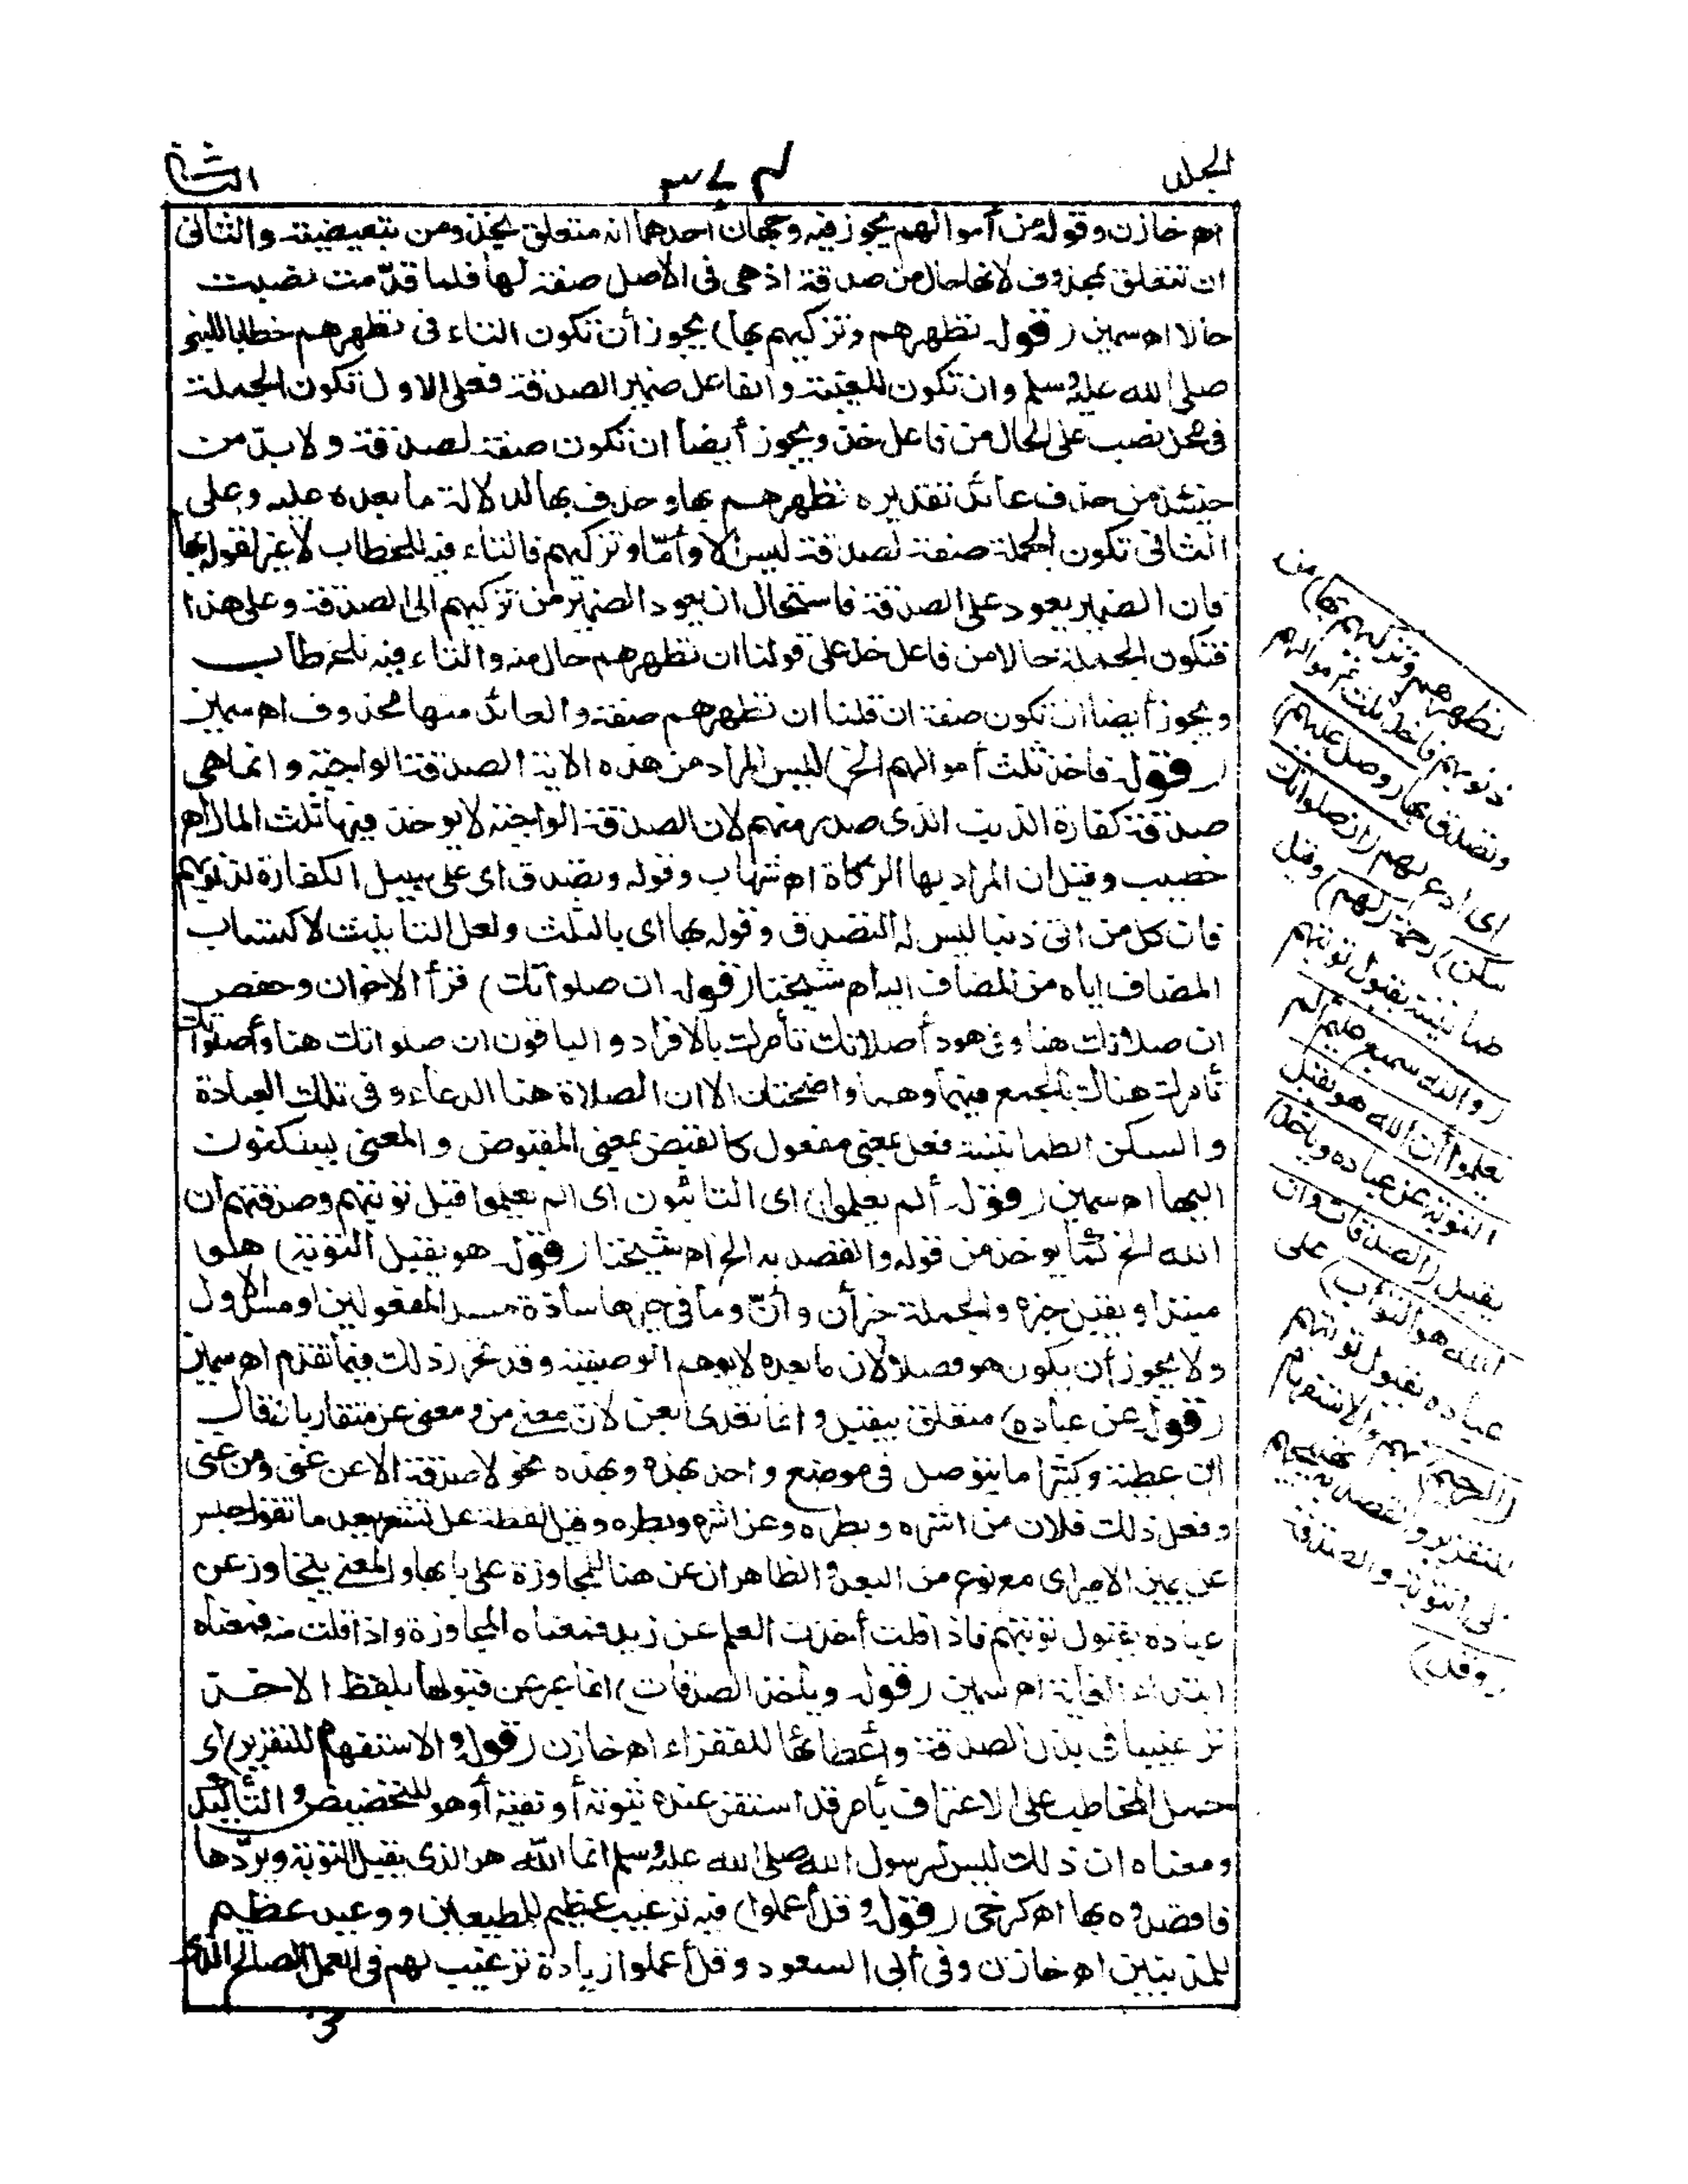 الجلد
الثانى
اه خازن وقوله من أموالهم يجوز فيه وجهان أحدهما انه متعلق بخذ ومن تبعيضية والثانى
ان تتعلق بمحذوف لانها حال من صدقة اذ هى فى الاصل صفة لها فلما قدّمت نصبت
حالا اه سمين (قوله تطهرهم وتزكيهم بها) يجوز أن تكون التاء فى تطهرهم خطابا للنبى
صلى الله عليه وسلم وان تكون للغيبة والفاعل ضمير الصدقة فعلى الاول تكون الجملة
فى محل نصب على الحال من فاعل خذ ويجوز أيضا ان تكون صفة لصدقة ولا بدّ من
حينئذ من حذف عائد تقديره تطهرهم بها وحذف بها لدلالة ما بعده عليه وعلى
الثانى تكون الجملة صفة لصدقة ليس الا وأمّا وتزكيهم فالتاء فيه للخطاب لا غير لقوله بها
فان الضمير يعود على الصدقة فاستحال ان يعود الضمير من تزكيهم الى الصدقة وعلى هذا
فتكون الجملة حالا من فاعل خذ على قولنا ان تطهرهم حال منه والتاء فيه للخطاب
ويجوز أيضا ان تكون صفة ان قلنا ان تطهرهم صفة والعائد منها محذوف اه سمين
(قوله فاخذ ثلث أموالهم الخ) ليس المراد من هذه الاية الصدقة الواجبة وانما هى
صدقة كفارة الذنب الذى صدر منهم لان الصدقة الواجبة لا يوخذ فيها ثلث المال اه
خطيب وقيل ان المراد بها الزكاة اه شهاب وقوله وتصدق اى على سبيل الكفارة لذنوبهم
فان كل من اتى ذنبا ليس له التصدق وقوله بها اى بالثلث ولعل التأنيث لاكتساب
المضاف اياه من المضاف اليه اه شيخنا (قوله ان صلواتك) قرأ الاخوان وحفص
ان صلاتك هنا وفى هود أصلاتك تأمرك بالافراد والباقون ان صلواتك هنا وأصلواتك
تأمرك هناك بالجمع فيهما وهما واضحتان الا ان الصلاة هنا الدعاء وفى تلك العبادة
والسكن الطمانينة فعل بمعنى مفعول كالقبض بمعنى المقبوض والمعنى يسكنون
اليها اه سمين (قوله ألم يعلموا) اى التائبون اى الم يعلموا قبل توبتهم وصدقتهم ان
الله الخ كما يوخذ من قوله والقصد به الخ اه شيخنا (قوله هو يقبل التوبة) هو
مبتدا ويقبل خبره والجملة خبر أن وأنّ وما فى حيزها سادّة مسد المفعولين او مسد الاول
ولا يجوز أن يكون هو فصلا لان ما بعده لا يوهم الوصفية وقد تحرر ذلك فيما تقدم اه سمين
(قوله عن عباده) متعلق بيقبل وانما تعدى بعن لان معنى من ومعنى عن متقاربان قال
ابن عطية وكثيرا ما يتوصل فى موضع واحد بهذه وبهذه نحو لا صدقة الا عن غنى ومن غنى
وفعل ذلك فلان من اشره وبطره وعن اشره وبطره وقيل لفظة عن تشعر ببعد ما تقول جلس
عن يمين الامير اى مع نوع من البعد والظاهر ان عن هنا للمجاوزة على بابها والمعنى يتجاوز عن
عباده بقبول توبتهم فاذا قلت أخذت العلم عن زيد فمعناه المجاوزة واذا قلت منه فمعناه
ابتداء الغاية اه سمين (قوله وياخذ الصدقات) انما عبر عن قبولها بلفظ الاخذ
ترغيبا فى بذل الصدقة واعطائها للفقراء اه خازن (قوله والاستفهام للتقرير) اى
حمل المخاطب على الاعتراف بأمر قد استقر عنده ثبوته أو نفيه أو هو للتخصيص والتأكيد
ومعناه ان ذلك ليس لرسول الله صلى الله عليه وسلم انما الله هو الذى يقبل التوبة ويردّها
فاقصدوه بها اه كرخى (قوله وقل أعملوا) فيه ترغيب عظيم للمطيعين ووعيد عظيم
للمذنبين اه خازن وفى أبى السعود وقل أعملوا زيادة ترغيب لهم فى العمل الصالح الذى
تطهرهم وتزكيهم بها) من
ذنوبهم فاخذ ثلث أموالهم
وتصدق بها (وصل عليهم)
اى ادع لهم (ان صلواتك
سكن) رحمة (لهم) وقيل
طمانينة بقبول توبتهم
(والله سميع عليم الم
يعلموا أن الله هو يقبل
التوبة عن عباده وياخذ)
يقبل (الصدقات وان
الله هو التواب) على
عباده بقبول توبتهم
(الرحيم) بهم والاستفهام
للتقرير والقصد به تهييجهم
الى التوبة والصدقة
(وقل)